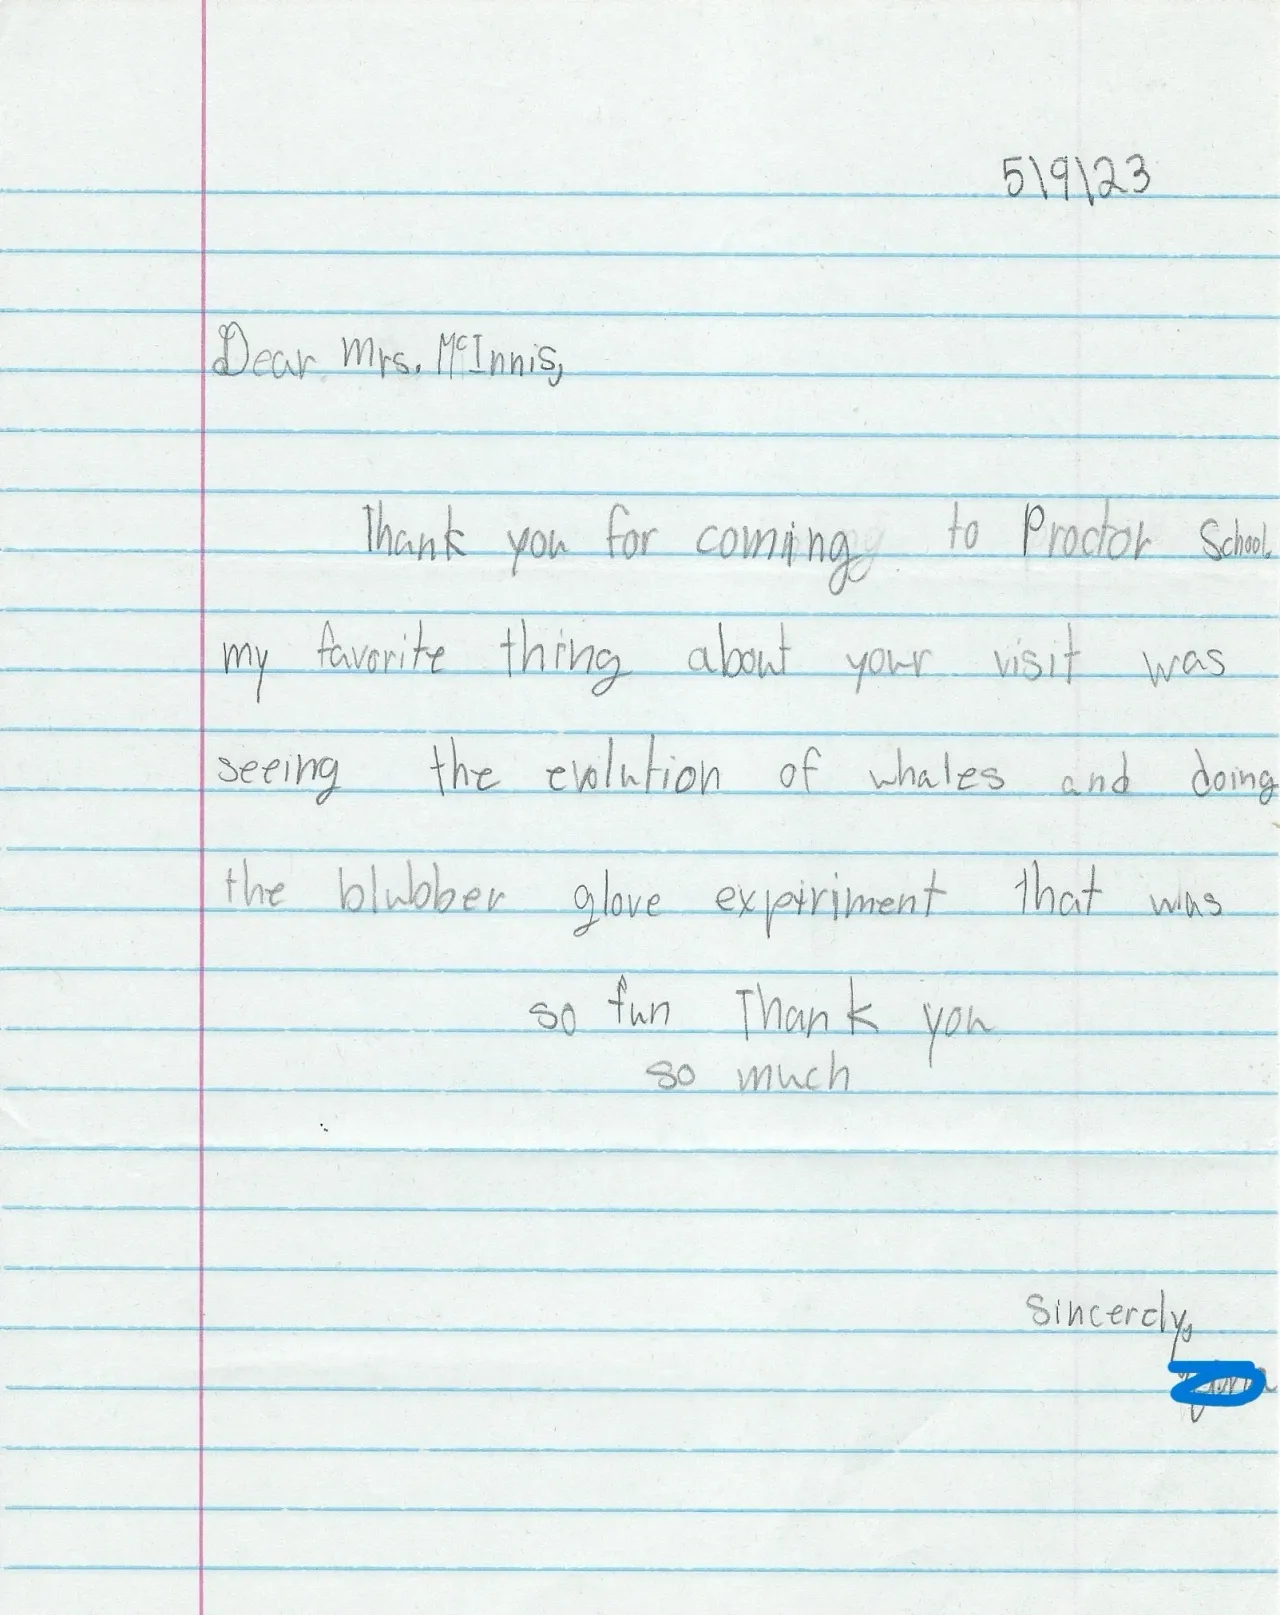 5\9\23
Dear Mrs. McInnis,
Thank you for coming to Proctor School.
my favorite thing about your visit was
seeing the evolution of whales and doing
the blubber glove expiriment that was
so fun Thank you
so much
Sincerely,